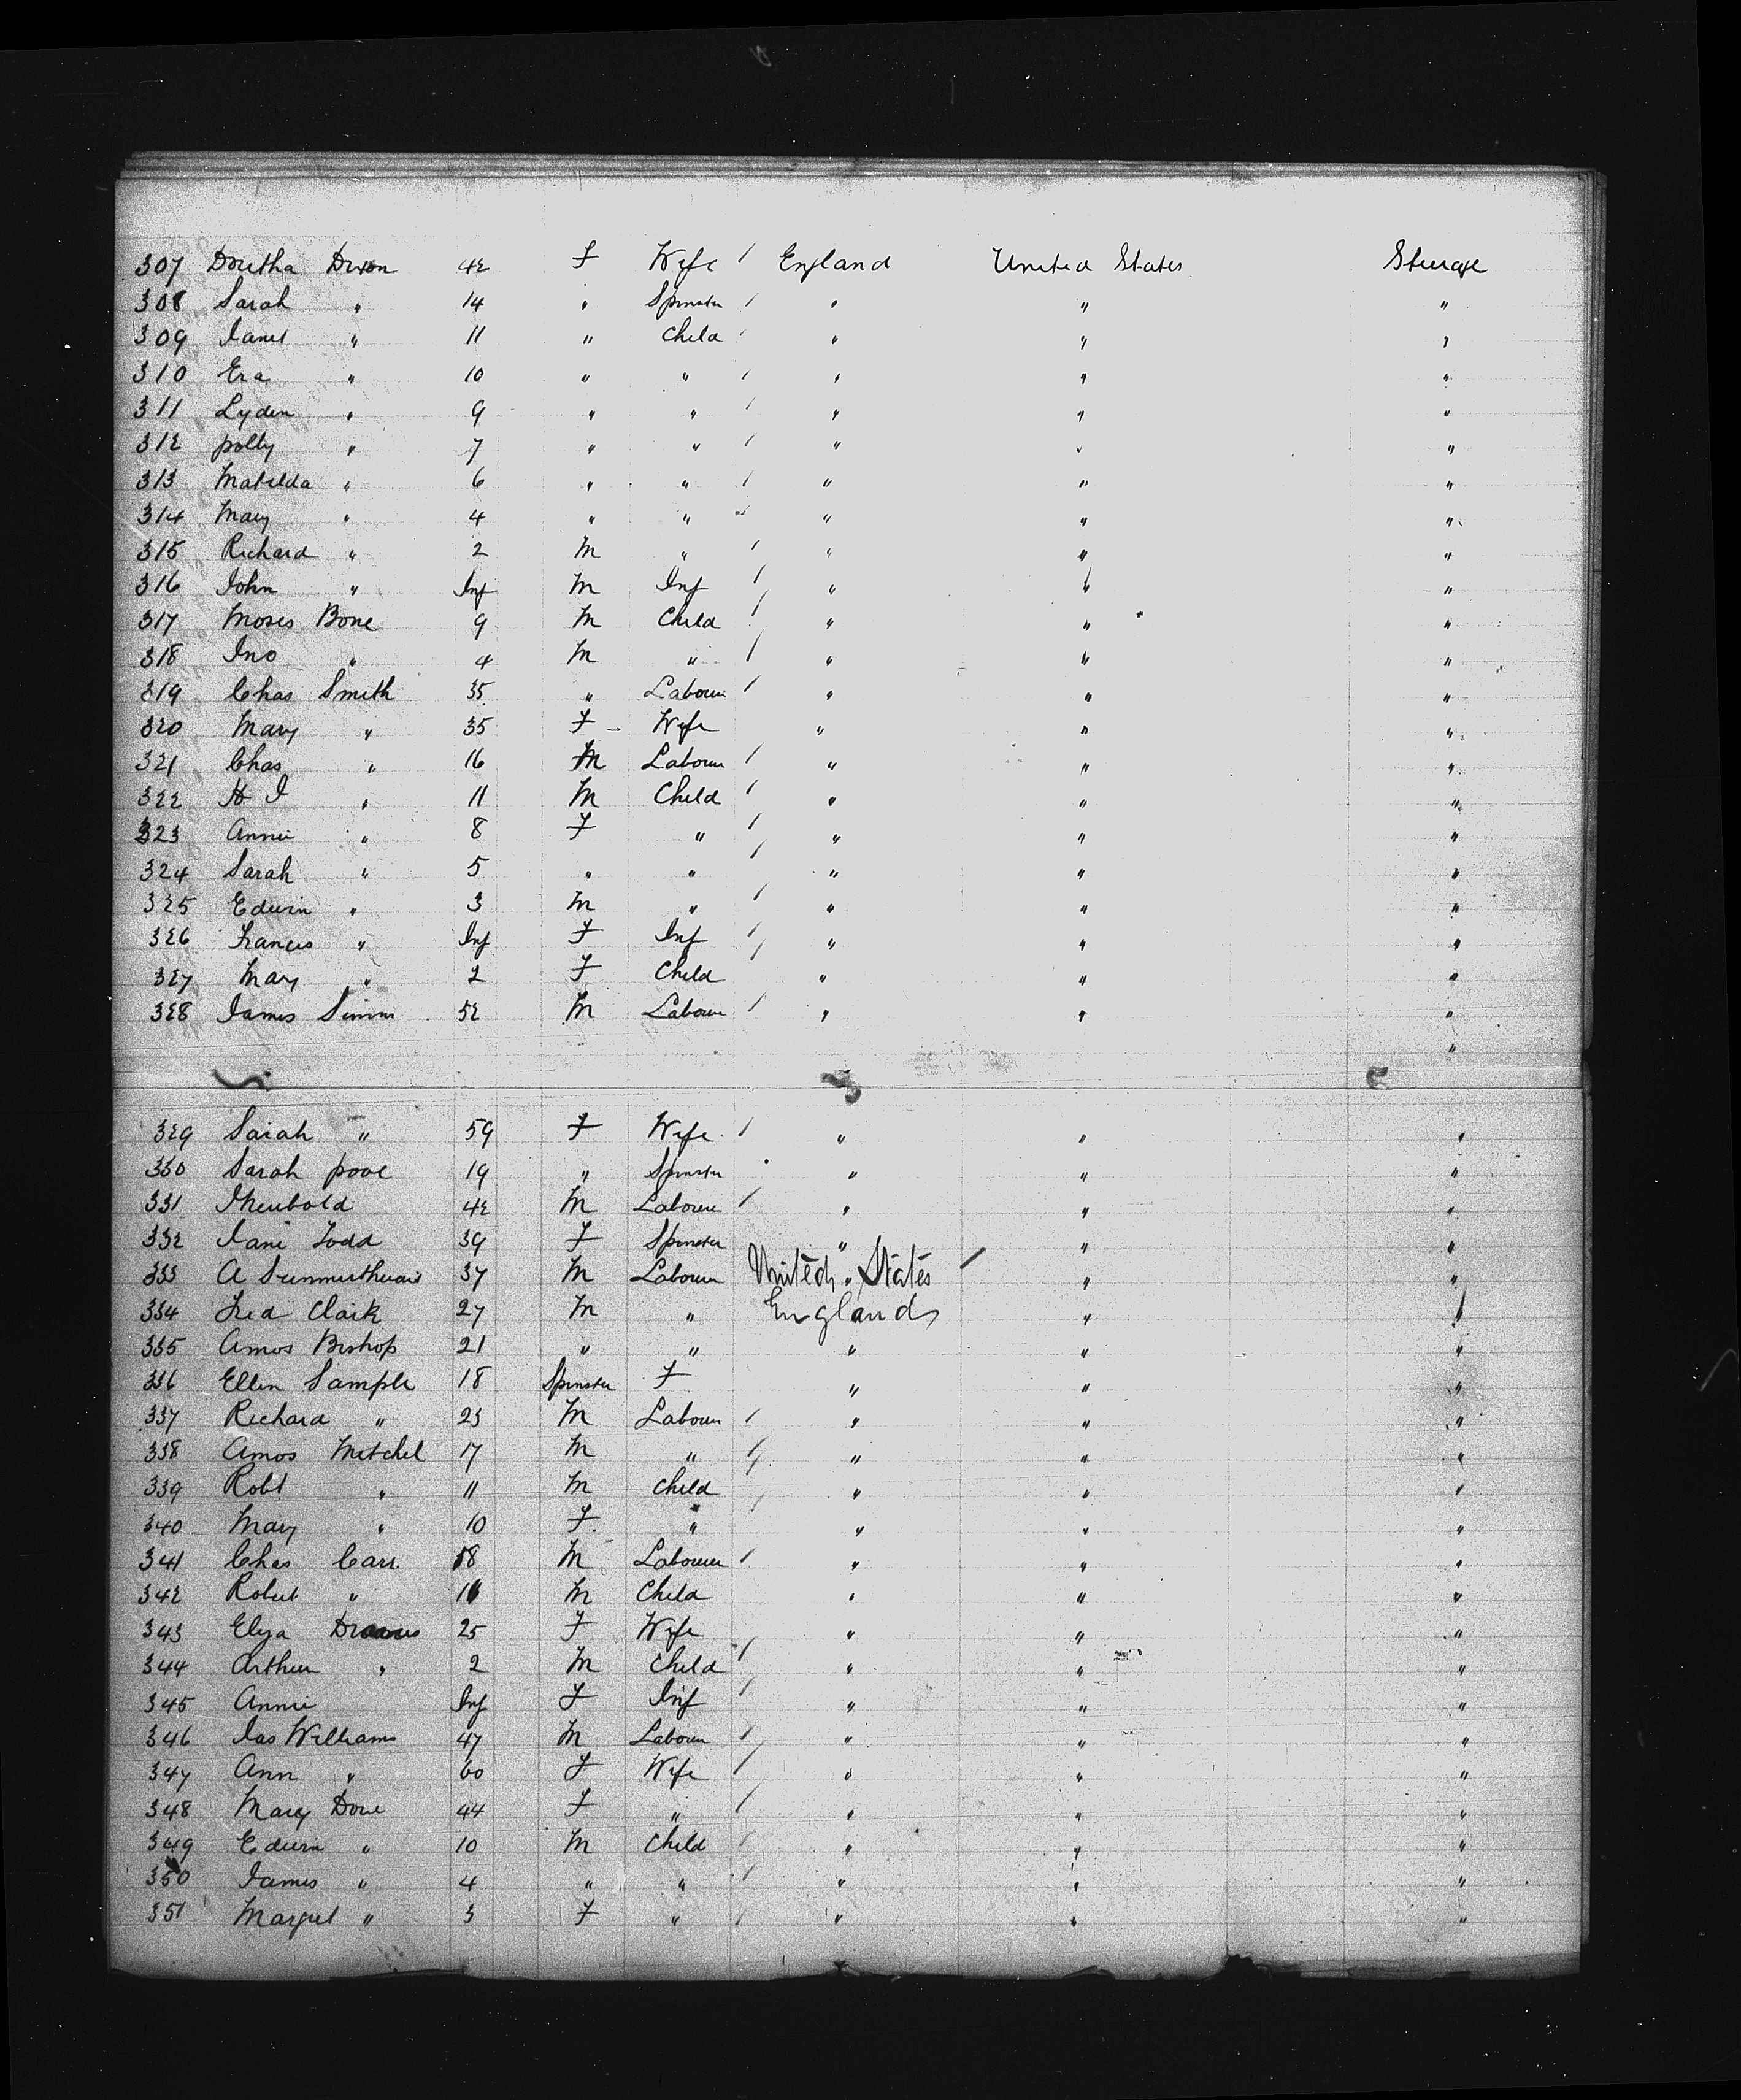 307 Dortha Dixon 42 F Wife / England United States Steerage
308 Sarah " 14 " Spinster / " " "
309 Janet " 11 " Child / " " "
310 Eva " 10 " " / " " "
311 Lyden " 9 " " / " " "
312 polly " 7 " " / " " "
313 Matilda " 6 " " / " " "
314 Mary " 4 " " " " "
315 Richard " 2 M " / " " "
316 John " Inf M Inf / " " "
317 Moses Bone 9 M Child / " " "
318 Jno " 4 M " / " " "
319 Chas Smith 35 " Labourer / " " "
320 Mary " 35 F Wife " " "
321 Chas " 16 M Labourer / " " "
322 H J " 11 M Child / " " "
323 Annie " 8 F " / " " "
324 Sarah " 5 " " / " " "
325 Edwin " 3 M " / " " "
326 Francis " Inf F Inf / " " "
327 Mary " 2 F Child / " " "
328 James Simms 52 M Labourer / " " "
"
329 Sarah " 59 F Wife / " " "
330 Sarah poole 19 " Spinster " " "
331 42 M Labourer / " " "
332 Jane Todd 39 F Spinster " " "
333 A 37 M Labourer United " States / " "
334 Fred Clark 27 M " England " "
335 Amos Bishop 21 " " " " "
336 Ellen Sample 18 Spinster F " " "
337 Richard " 23 M Labourer / " " "
338 Amos Mitchel 17 M " / " " "
339 Robt " 11 M Child / " " "
340 Mary " 10 F " " " "
341 Chas Carr 18 M Labourer / " " "
342 Robert " 11 M Child " " "
343 Eliza 25 F Wife " " "
344 Arthur " 2 M Child / " " "
345 Annie Inf F Inf / " " "
346 Jas Williams 47 M Labourer / " " "
347 Ann " 60 F Wife / " " "
348 Mary Done 44 F " / " " "
349 Edwin " 10 M Child / " " "
350 James " 4 " " / " " "
351 Margret " 3 F " / " " "